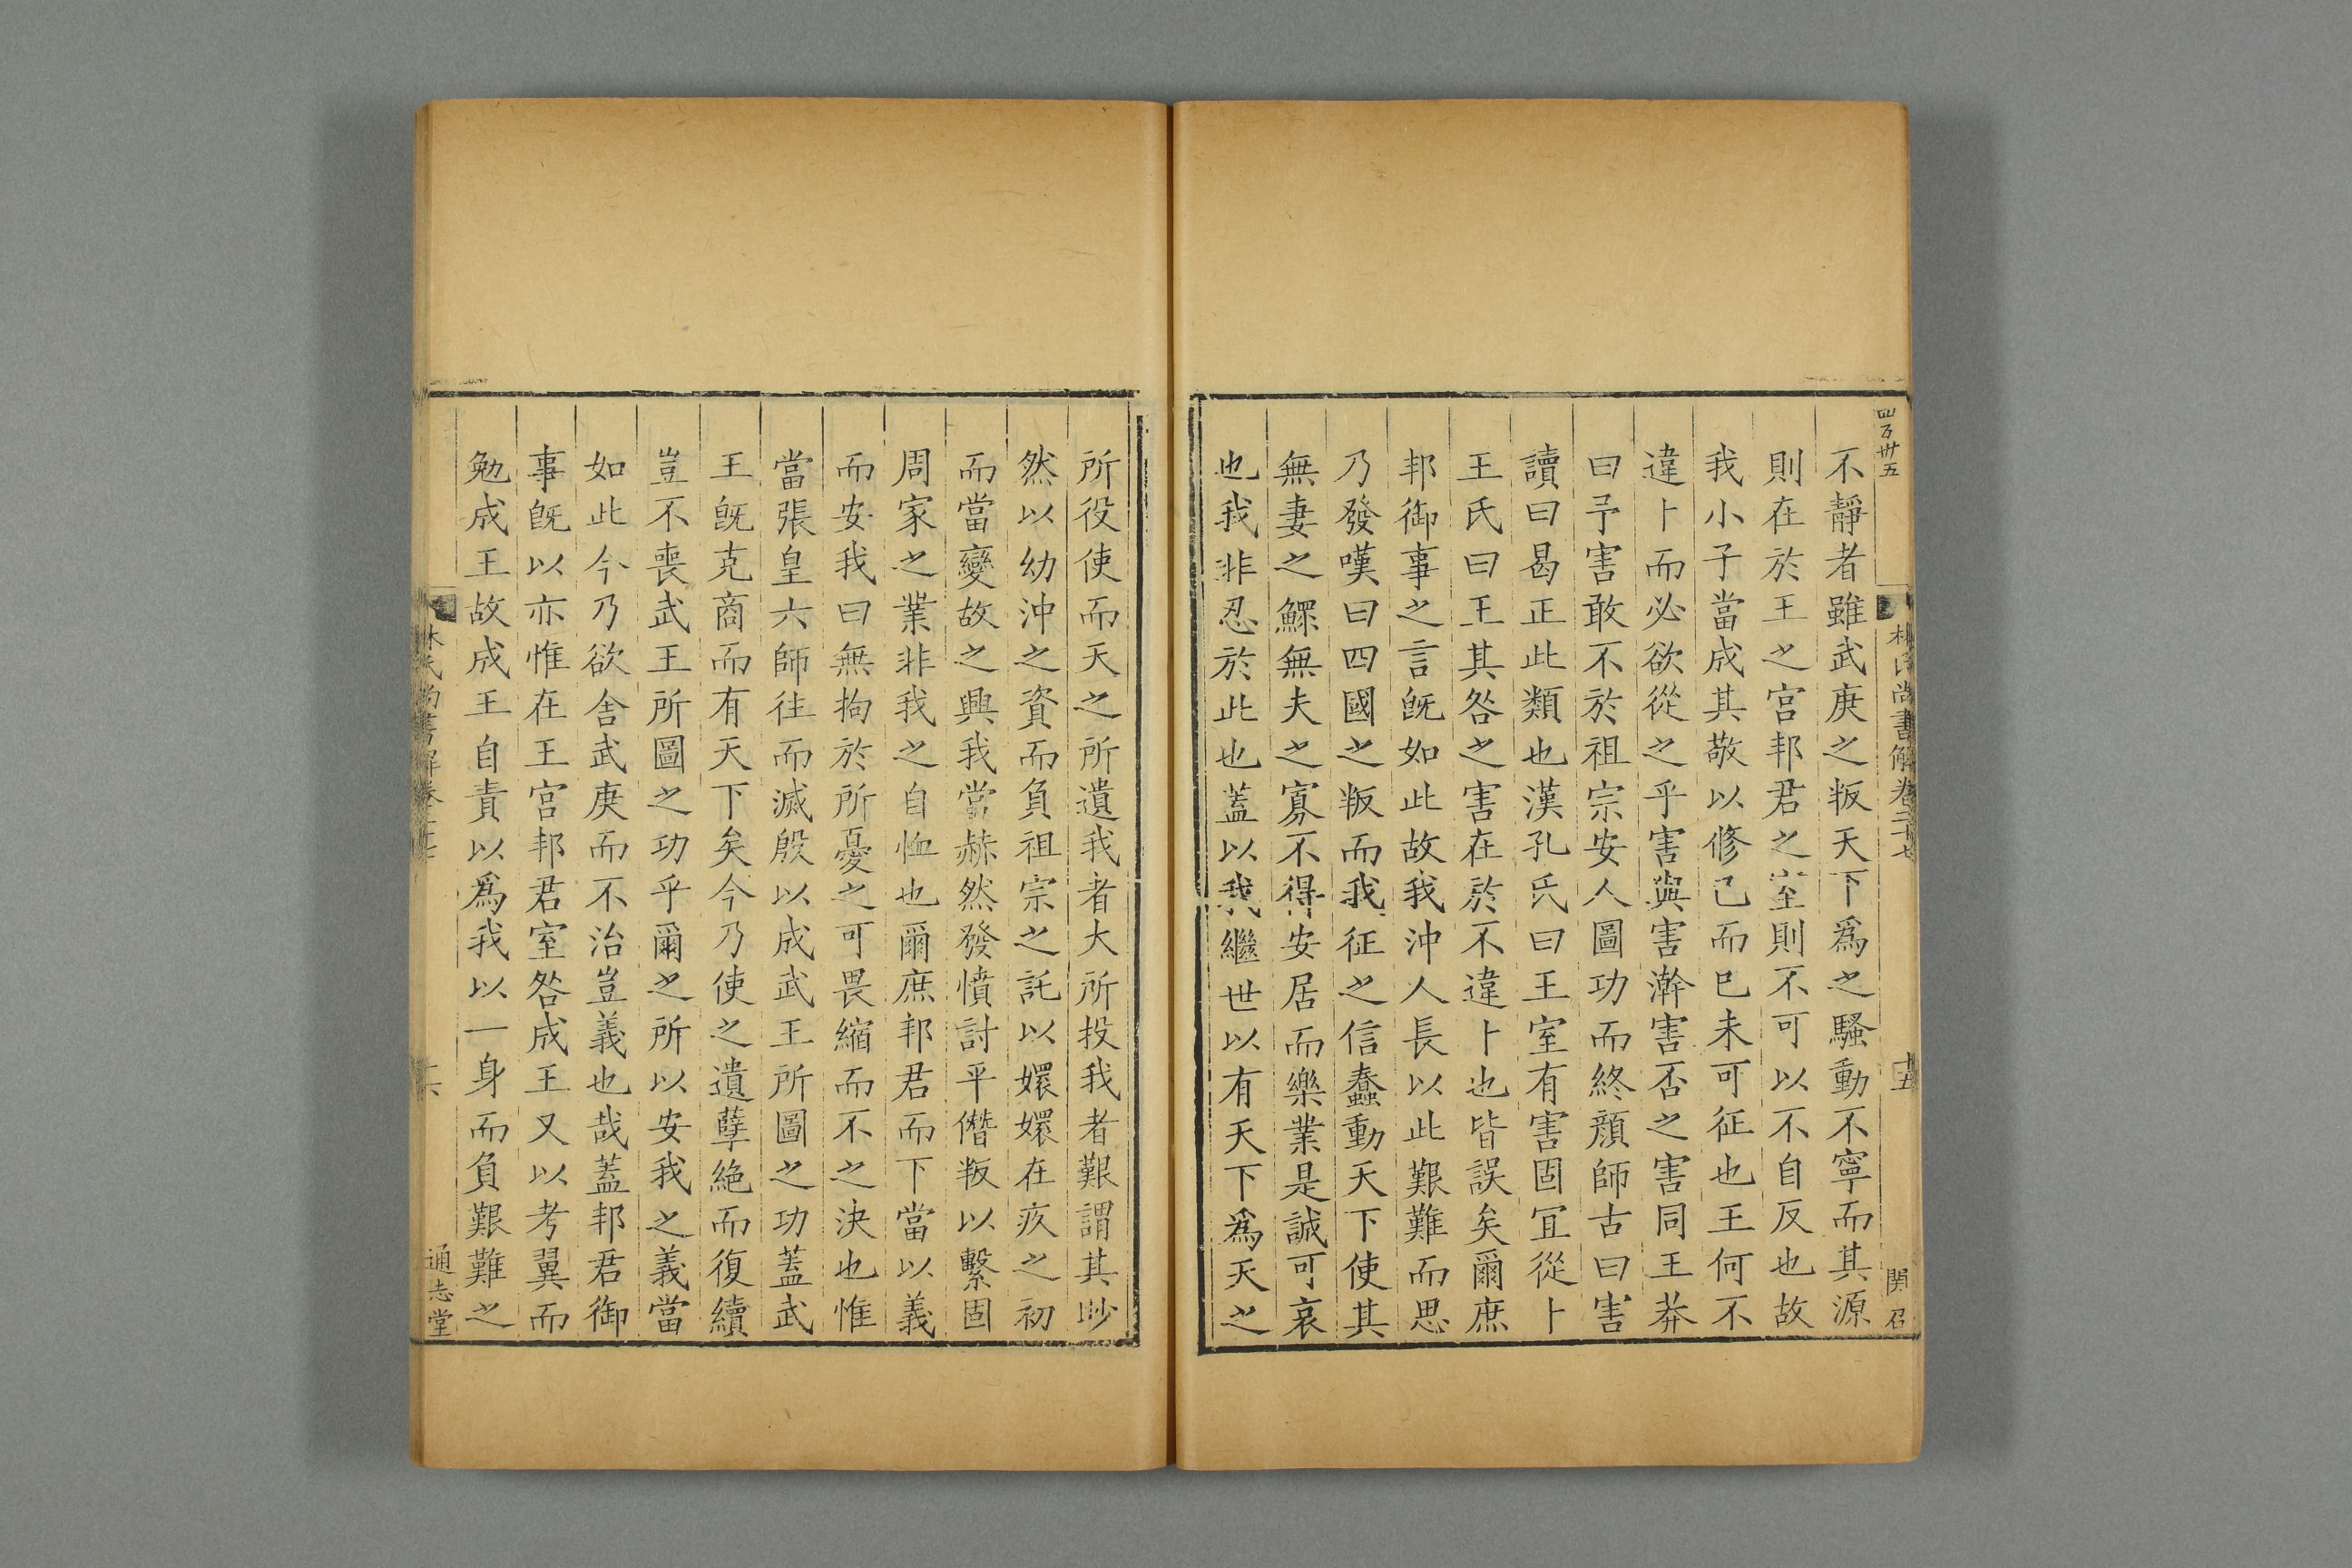 四百卅五
林氏尚書解卷二十七
十五
関召
不靜者雖武庚之叛天下爲之騷動不寧而其源
則在於王之宮邦君之室則不可以不自反也故
我小子當成其敬以修己而已未可征也王何不
違卜而必欲從之乎害與害澣害否之害同王莽
曰予害敢不於祖宗安人圖功而終顔師古曰害
讀曰曷正此類也漢孔氏曰王室有害固宜從卜
王氏曰王其咎之害在於不違卜也皆誤矣爾庶
邦御事之言旣如此故我沖人長以此艱難而思
乃發嘆曰四國之叛而我征之信蠢動天下使其
無妻之鰥無夫之寡不得安居而樂業是誠可哀
也我非忍於此也蓋以我繼世以有天下爲天之
所役使而天之所遺我者大所投我者艱謂其眇
然以幼沖之資而負祖宗之託以嬛嬛在疚之初
而當變故之興我當赫然發憤討平僭叛以繫固
周家之業非我之自恤也爾庶邦君而下當以義
而安我曰無拘於所憂之可畏縮而不之決也惟
當張皇六師往而滅殷以成武王所圖之功蓋武
王旣克商而有天下矣今乃使之遺孽絶而復續
豈不喪武王所圖之功乎爾之所以安我之義當
如此今乃欲舍武庚而不治豈義也哉蓋邦君御
事旣以亦惟在王宮邦君室咎成王又以考翼而
勉成王故成王自責以爲我以一身而負艱難之
林氏尚書解卷二十七
十六
通志堂